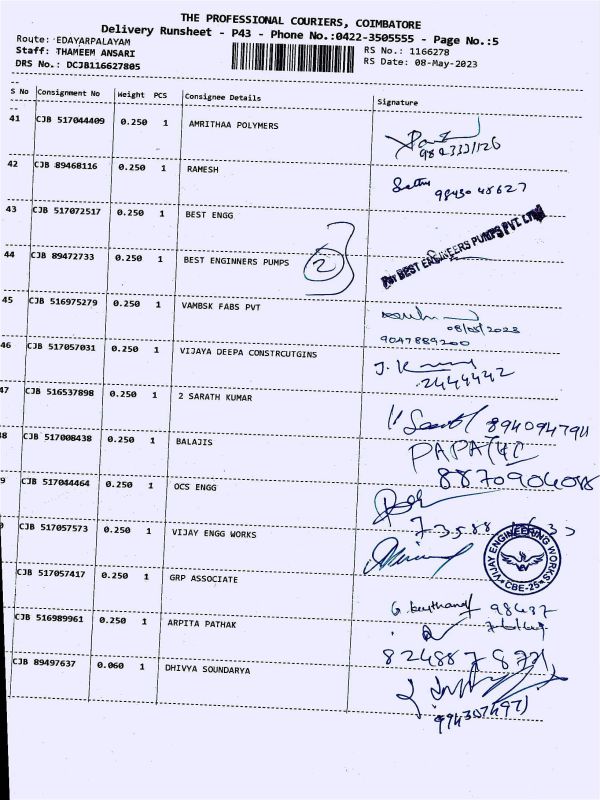 THE PROFESSIONAL COURIERS, COIMBATORE
Delivery Runsheet - P43 - Phone No.:0422-3505555 - Page No.:5
Route: EDAYARPALAYAM
RS No.: 1166278
Staff: THAMEEM ANSARI
RS Date: 08-May-2023
DRS No.: DCJB116627805
S No Consignment No Weight PCS Consignee Details Signature
41 CJB 517044409 0.250 1 AMRITHAA POLYMERS
42 CJB 89468116 0.250 1 RAMESH
9843045627
43 CJB 517072517 0.250 1 BEST ENGG
44 CJB 89472733 0.250 1 BEST ENGINNERS PUMPS 2
For BEST ENGINEERS PUMPS PVT LTD
45 CJB 516975279 0.250 1 VAMBSK FABS PVT
08/05/2023
9047889200
46 CJB 517057031 0.250 1 VIJAYA DEEPA CONSTRCUTGINS
2444442
47 CJB 516537898 0.250 1 2 SARATH KUMAR
8940947911
8 CJB 517008438 0.250 1 BALAJIS
9 CJB 517044464 0.250 1 OCS ENGG
CJB 517057573 0.250 1 VIJAY ENGG WORKS
VIJAY ENGINEERING WORKS
CBE-25
CJB 517057417 0.250 1 GRP ASSOCIATE
CJB 516989961 0.250 1 ARPITA PATHAK
CJB 89497637 0.060 1 DHIVYA SOUNDARYA